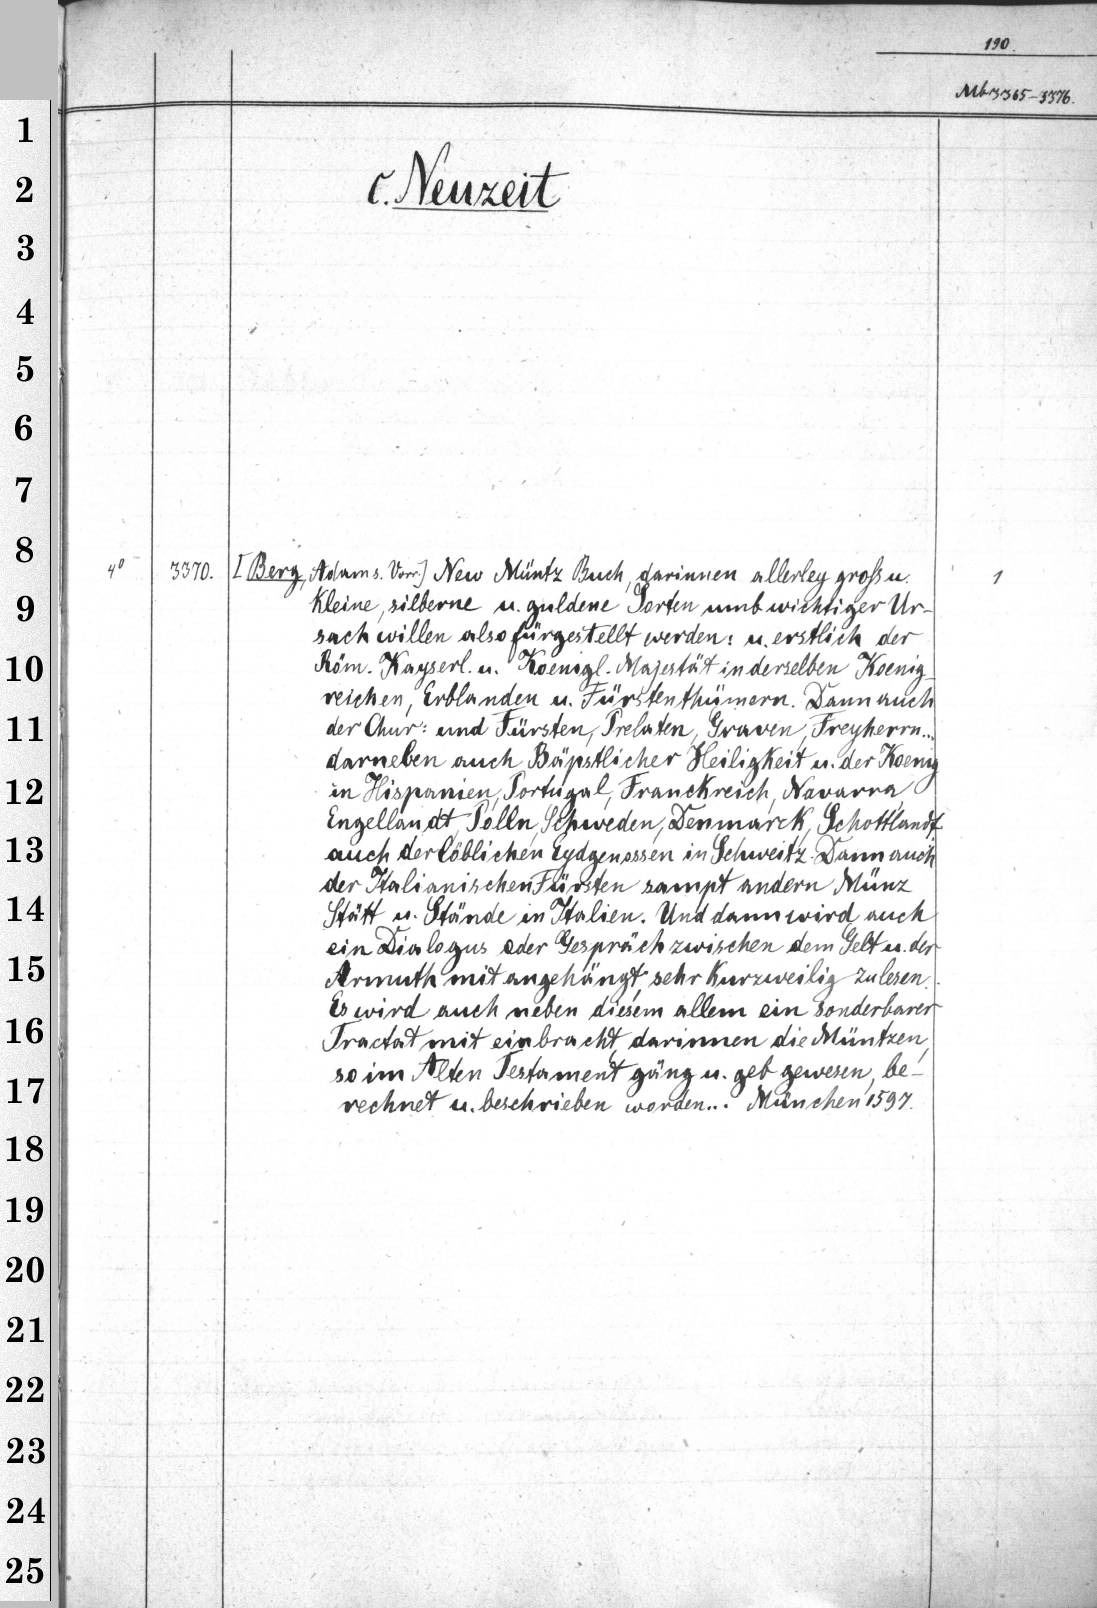 190.
Mb 3365-3376.
c. Neuzeit
4° 3370. [Berg, Adam s. Vorr.] New Müntz Buch, darinnen allerley gross u. 1
kleine, silberne u. guldene Sorten umb wichtiger Ur-
sach willen also fürgestellt werden: u. erstlich der
Röm. Kayserl. u. Koenigl. Majestät in derselben Koenig-
reichen, Erblanden u. Fürstenthümern. Dann auch
der Chur: und Fürsten, Prelaten, Graven, Freyherrn...
darneben auch Bäpstlicher Heiligkeit u. der Koenig
in Hispanien, Portugal, Franckreich, Navarra,
Engellandt, Polln, Schweden, Denmarck, Schottlandt
auch der löblichen Eydgenossen in Schweitz. Dann auch
der Italianischen Fürsten sampt andern Münz
Stätt u. Stände in Italien. Und dann wird auch
ein Dialogus oder Gespräch zwischen dem Gelt u. der
Armuth mit angehängt, sehr kurzweilig zu lesen.
Es wird auch neben diesem allem ein sonderbarer
Tractat mit einbracht, darinnen die Müntzen,
so im Alten Testament gäng u. geb gewesen, be-
rechnet u. beschrieben worden... München 1597.
1
2
3
4
5
6
7
8
9
10
11
12
13
14
15
16
17
18
19
20
21
22
23
24
25